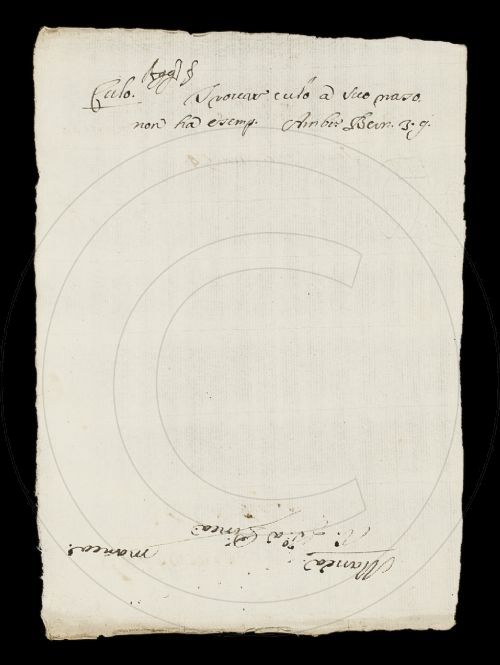 Culo. Trovar culo a suo naso.
non ha esemp. Ambr Bern. 3. 9.
manca.
Manca